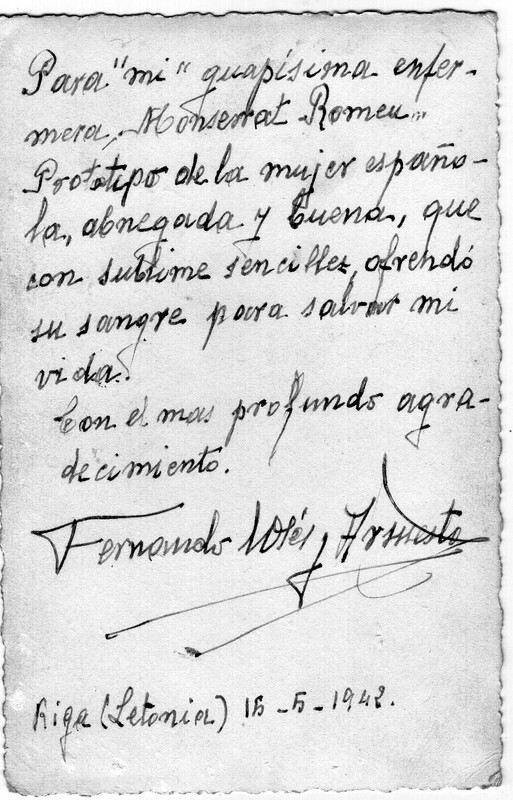 Para "mi" guapísima enfer-
mera, Monserrat Romeu..
Prototipo de la mujer españo-
la, abnegada y buena, que
con sublime sencillez, ofrendó
su sangre para salvar mi
vida.
Con el mas profundo agra-
decimiento.
Fernando
Riga (Letonia) 15-5-1942.